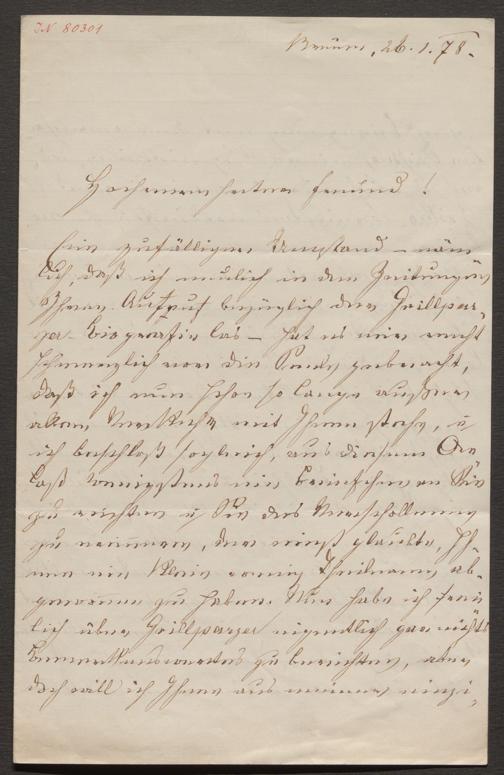 IN 80301
Brünn, 26.1.78.
Hochverehrter Freund!
Ein zufälliger Umstand – näm
lich, daß ich neulich in den Zeitungen
Ihren Aufruf bezüglich der Grillpar-
zer-Biografie las – hat es mir recht
schmerzlich vor die Seele gebracht,
daß ich nun schon so lange außer
allem Verkehr mit Ihnen stehe, u
ich beschloß sogleich, aus diesem An
laß wenigstens ein Briefchen an Sie
zu richten u Sie des Verschollenen
zu erinnern, der einst glaubte, Ih-
nen ein klein wenig Theilnahme ab-
gewonnen zu haben. Nun habe ich frei
lich über Grillparzer eigentlich gar nichts
Bemerkenswertes zu berichten, aber
doch will ich Ihnen aus meiner einzi-